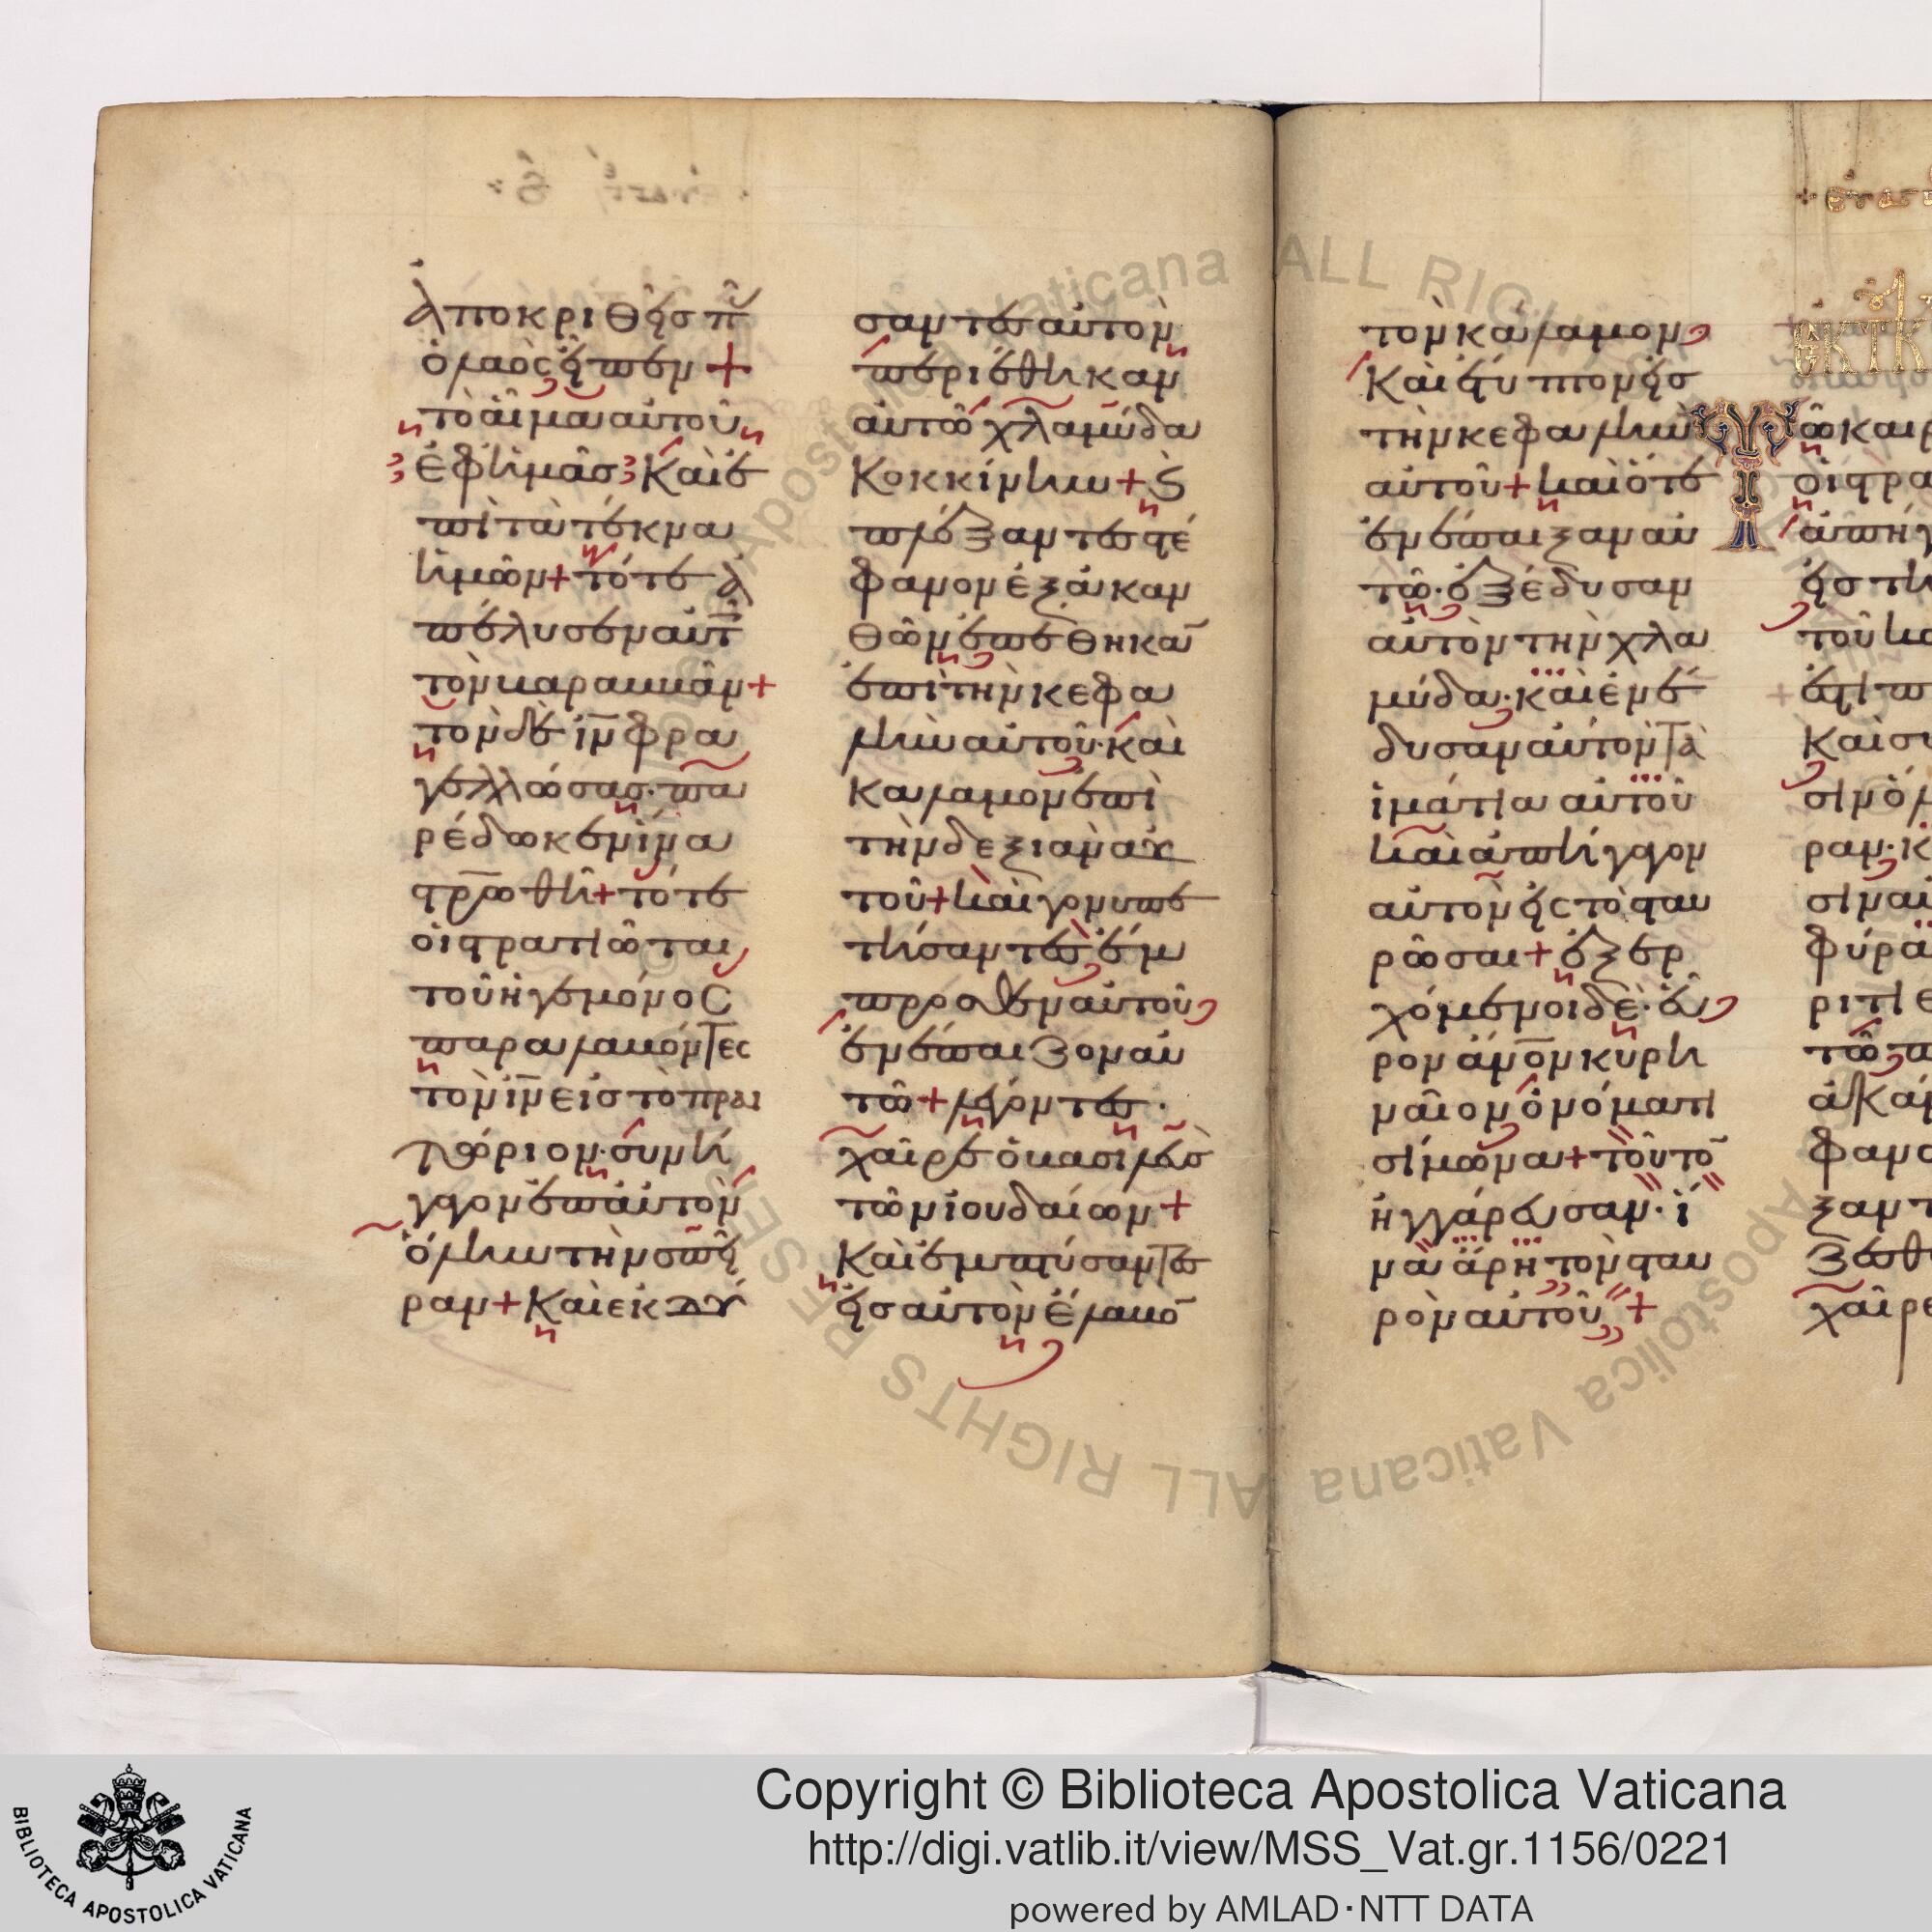 ἀποκριθεὶς πᾶς
ὁ λαὸς εἶπεν +
τὸ αἷμα αὐτοῦ
ἐφ ἡμᾶς καὶ ἐ
πὶ τὰ τέκνα
ἡμῶν + τότε ἀ
πέλυσεν αὐτοῖς
τὸν βαραββᾶν +
τὸν δὲ ιν φρα
γελλώσας· πα
ρέδωκεν ἵνα
στρωθῆ + τότε
οἱ στρατιῶται
τοῦ ἡγεμόνος
παραλαβόντες
τὸν ιν εἰς τὸ πραι
τώριον· συνή
γαγον ἐπ αὐτὸν
ὅλην τὴν σπεῖ
ραν + καὶ ἐκδύ
σαντες αὐτὸν
περιέθηκαν
αὐτῶ χλαμύδα
κοκκίνην + Ϗ
πλέξαντες στέ
φανον ἐξ ἀκαν
θῶν ἐπέθηκαν
ἐπὶ τὴν κεφα
λὴν αὐτοῦ· καὶ
κάλαμον ἐπὶ
τὴν δεξιὰν αὐ
τοῦ + καὶ γονυπε
τήσαντες ἔμ
προσθεν αὐτοῦ
ἐνέπαιζον αὐ
τῶ + λέγοντες·
χαῖρε ὁ βασιλεὺς
τῶν ἰουδαίων +
καὶ ἐμπτύσαντες
εἰς αὐτὸν ἔλαβον
τὸν κάλαμον
καὶ ἔτυπτον εἰς
τὴν κεφαλὴν
αὐτοῦ + καὶ ὅτε
ἐνέπαιξαν αὐ
τῶ· ἐξέδυσαν
αὐτὸν τὴν χλα
μύδα· καὶ ἐνέ
δυσαν αὐτὸν τὰ
ἱμάτια αὐτοῦ
καὶ ἀπήγαγον
αὐτὸν εἰς τὸ σταυ
ρῶσαι + ἐξερ
χόμενοι δὲ· εὗ
ρον ἄνον κυρη
ναῖον ὀνόματι
σίμωνα + τοῦτον
ἠγγάρευσαν· ἵ
να ἄρη τὸν σταυ
ρὸν αὐτοῦ +
Copyright © Biblioteca Apostolica Vaticana
http://digi.vatlib.it/view/MSS_Vat.gr.1156/0221
powered by AMLAD·NTT DATA
BIBLIOTECA APOSTOLICA VATICANA